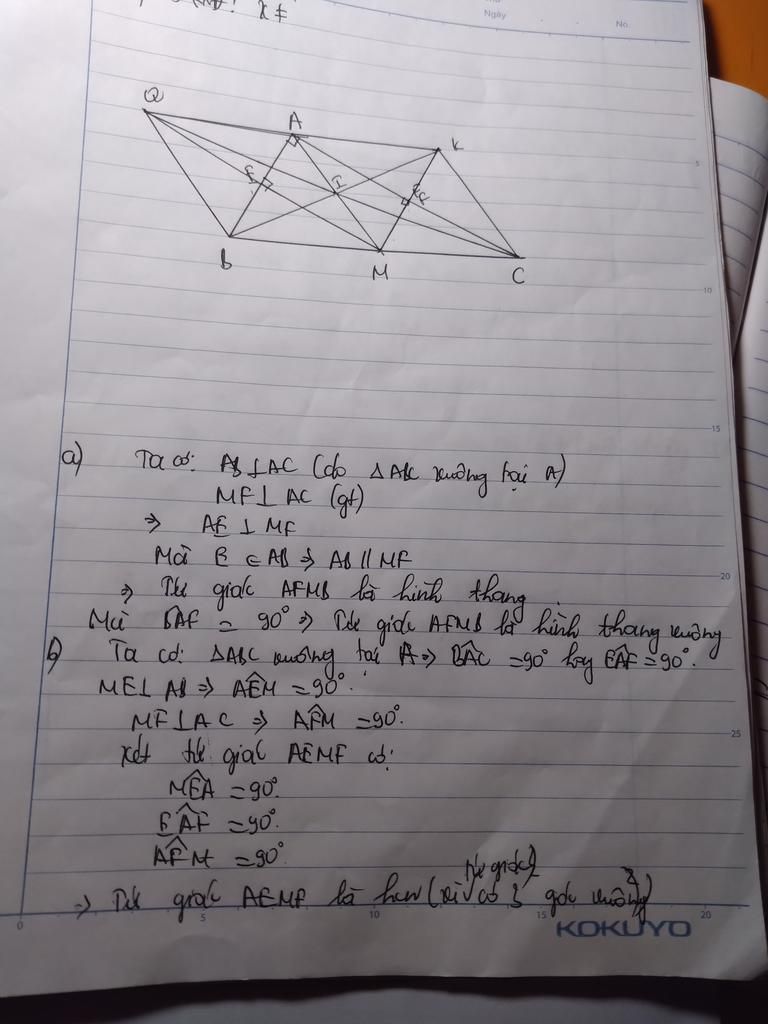 Ngày
No.
Q
A
K
E
I
F
B
M
C
5
10
15
a) Ta có: AB ⊥ AC (do ΔABC vuông tại A)
MF ⊥ AC (gt)
⇒ AE ⊥ MF
Mà E ∈ AB ⇒ AB // MF
20
⇒ Tứ giác AFMB là hình thang
Mà BAF = 90° ⇒ Tứ giác AFMB là hình thang vuông
b) Ta có: ΔABC vuông tại A ⇒ BAC = 90° hay EAF = 90°.
ME ⊥ AB ⇒ AEM = 90°.
MF ⊥ AC ⇒ AFM = 90°.
25
Xét tứ giác AEMF có:
MEA = 90°.
EAF = 90°.
AFM = 90°
tứ giác
⇒ Tứ giác AEMF là hcn (vì có 3 góc vuông)
0 5 10 15 20
KOKUYO